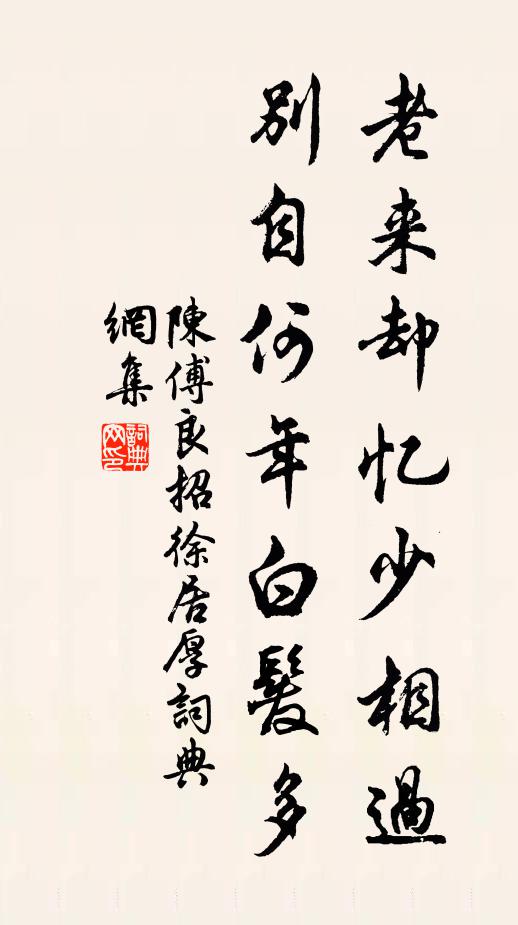 老来却忆少相過
別自何年白髮多
陳傅良招徐居厚詞典
網集
詞典
网印